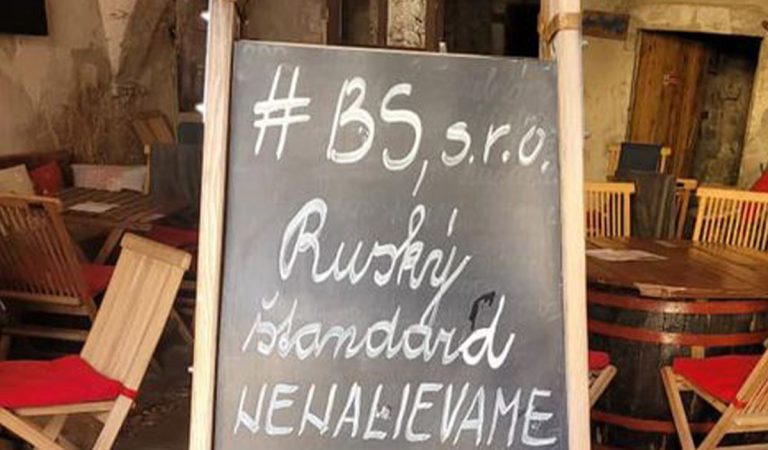 # BS, s.r.o.
Ruský
štandard
NENALIEVAME